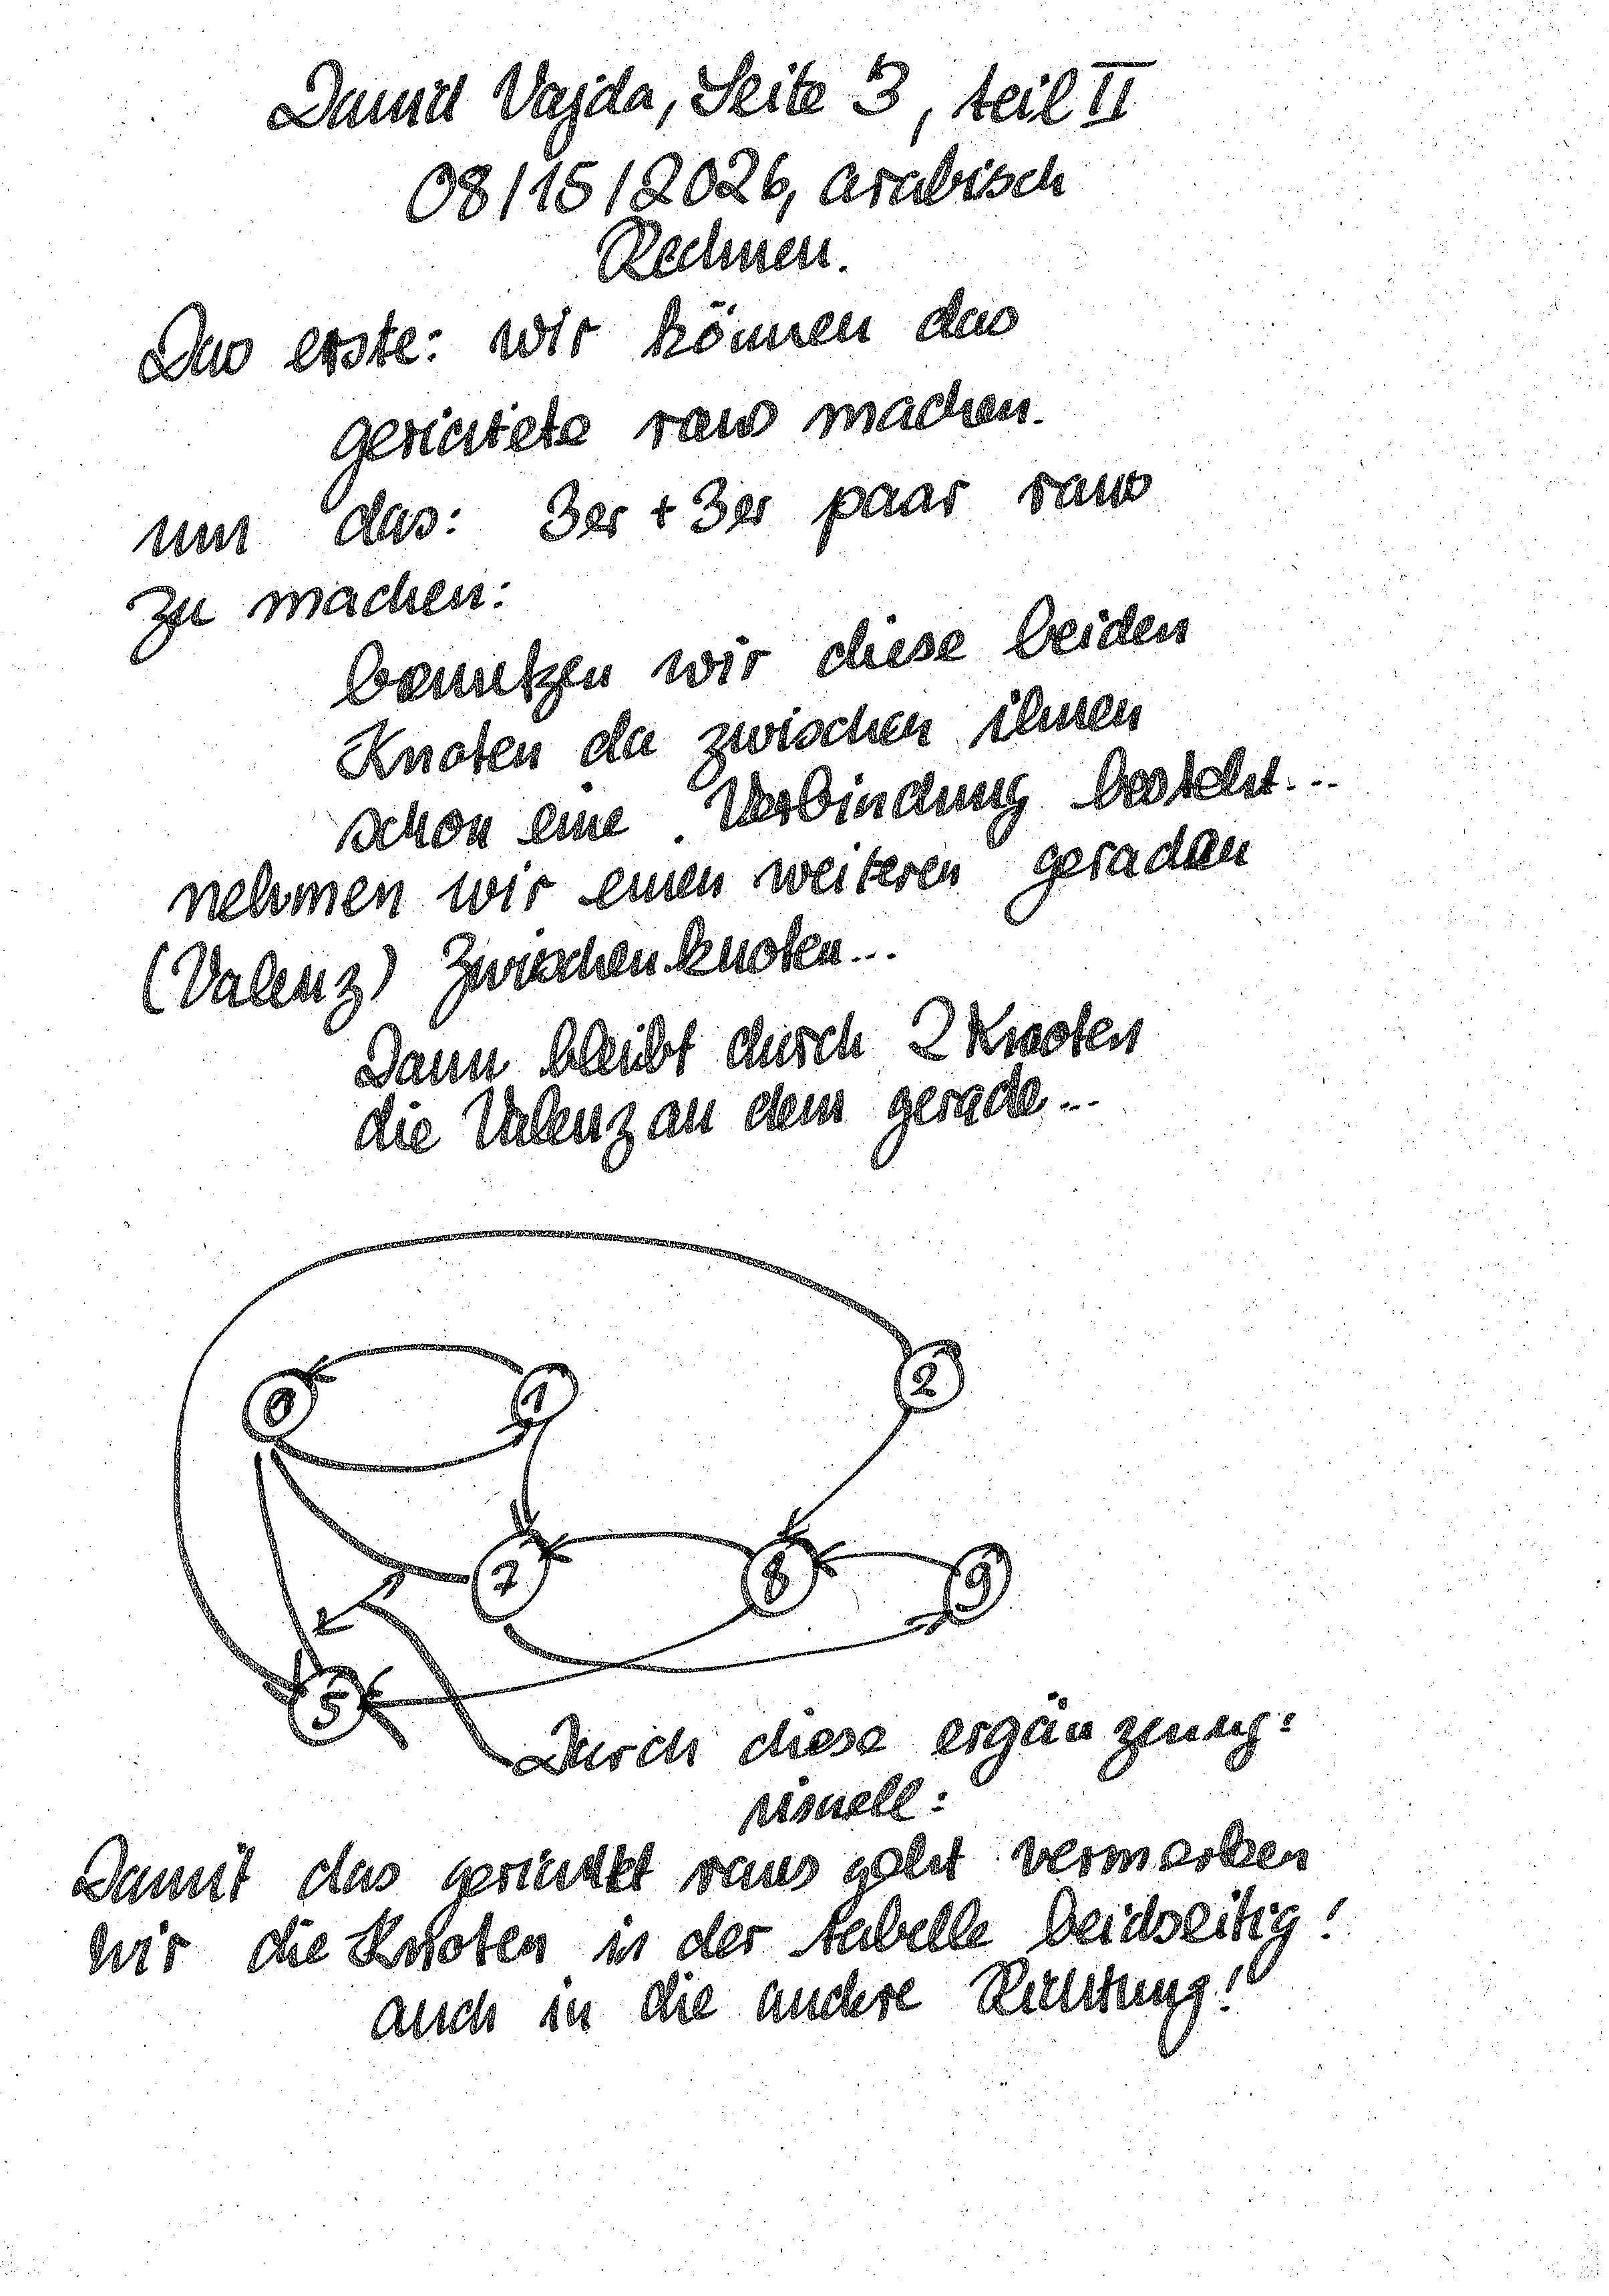 David Vajda, Seite 3, teil II
08/15/2026, arabisch
Rechnen.
Das erste: wir können das
gerichtete raus machen.
um das: 3er + 3er paar raus
zu machen:
benutzen wir diese beiden
Knoten da zwischen ihnen
schon eine Verbindung besteht...
nehmen wir einen weiteren geraden
(Valenz) Zwischenknoten...
Dann bleibt durch 2 Knoten
die Valenz an dem gerade...
0 1 2
7 8 9
5
Durch diese ergänzung:
visuell:
Damit das gerichtet raus geht vermerken
wir die Knoten in der tabelle beidseitig!
auch in die andere Richtung!